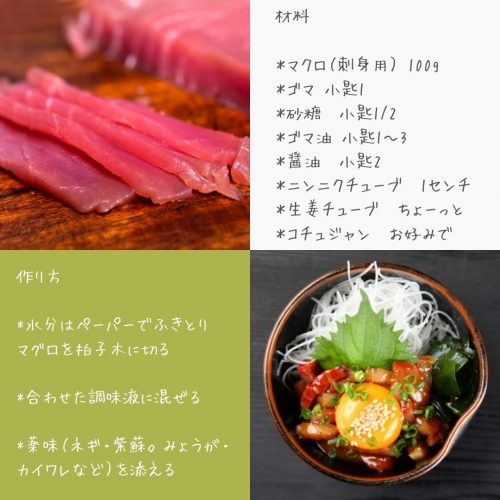 材料
*マクロ(刺身用) 100g
*ゴマ 小匙1
*砂糖 小匙1/2
*ゴマ油 小匙1〜3
*醤油 小匙2
*ニンニクチューブ 1センチ
*生姜チューブ ちょーっと
*コチュジャン お好みで
作り方
*水分はペーパーでふきとり
マグロを拍子木に切る
*合わせた調味液に混ぜる
*薬味(ネギ・紫蘇。みょうが・
カイワレなど)を添える